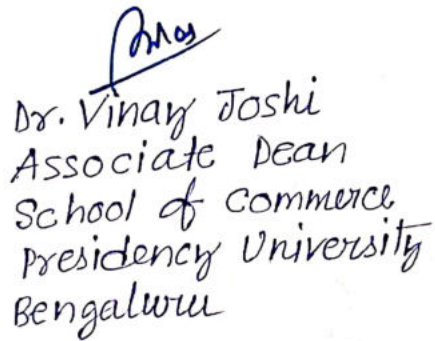 Dr. Vinay Joshi
Associate Dean
School of Commerce
Presidency University
Bengaluru